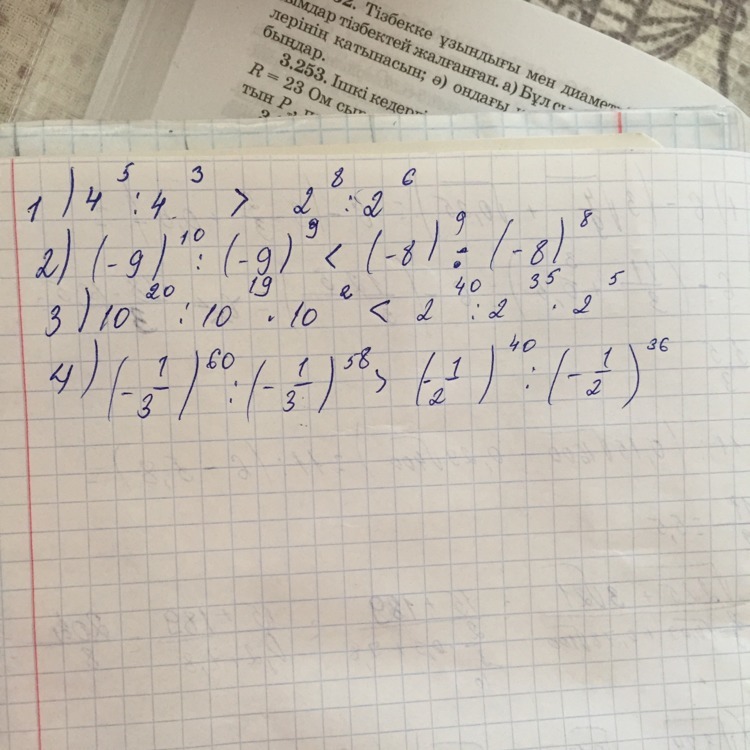 Тізбекке ұзындығы мен
тізбектей жалғанған. а) Бұл
лерінің қатынасын; ә) ондағы
бындар.
3.253. Ішкі
R = 23 Ом
тын P.
1) 4⁵ : 4³ > 2⁸ : 2⁶
2) (-9)¹⁰ : (-9)⁹ < (-8)⁹ : (-8)⁸
3) 10²⁰ : 10¹⁹ · 10² < 2⁴⁰ : 2³⁵ · 2⁵
4) (-1/3)⁶⁰ : (-1/3)⁵⁸ > (-1/2)⁴⁰ : (-1/2)³⁶